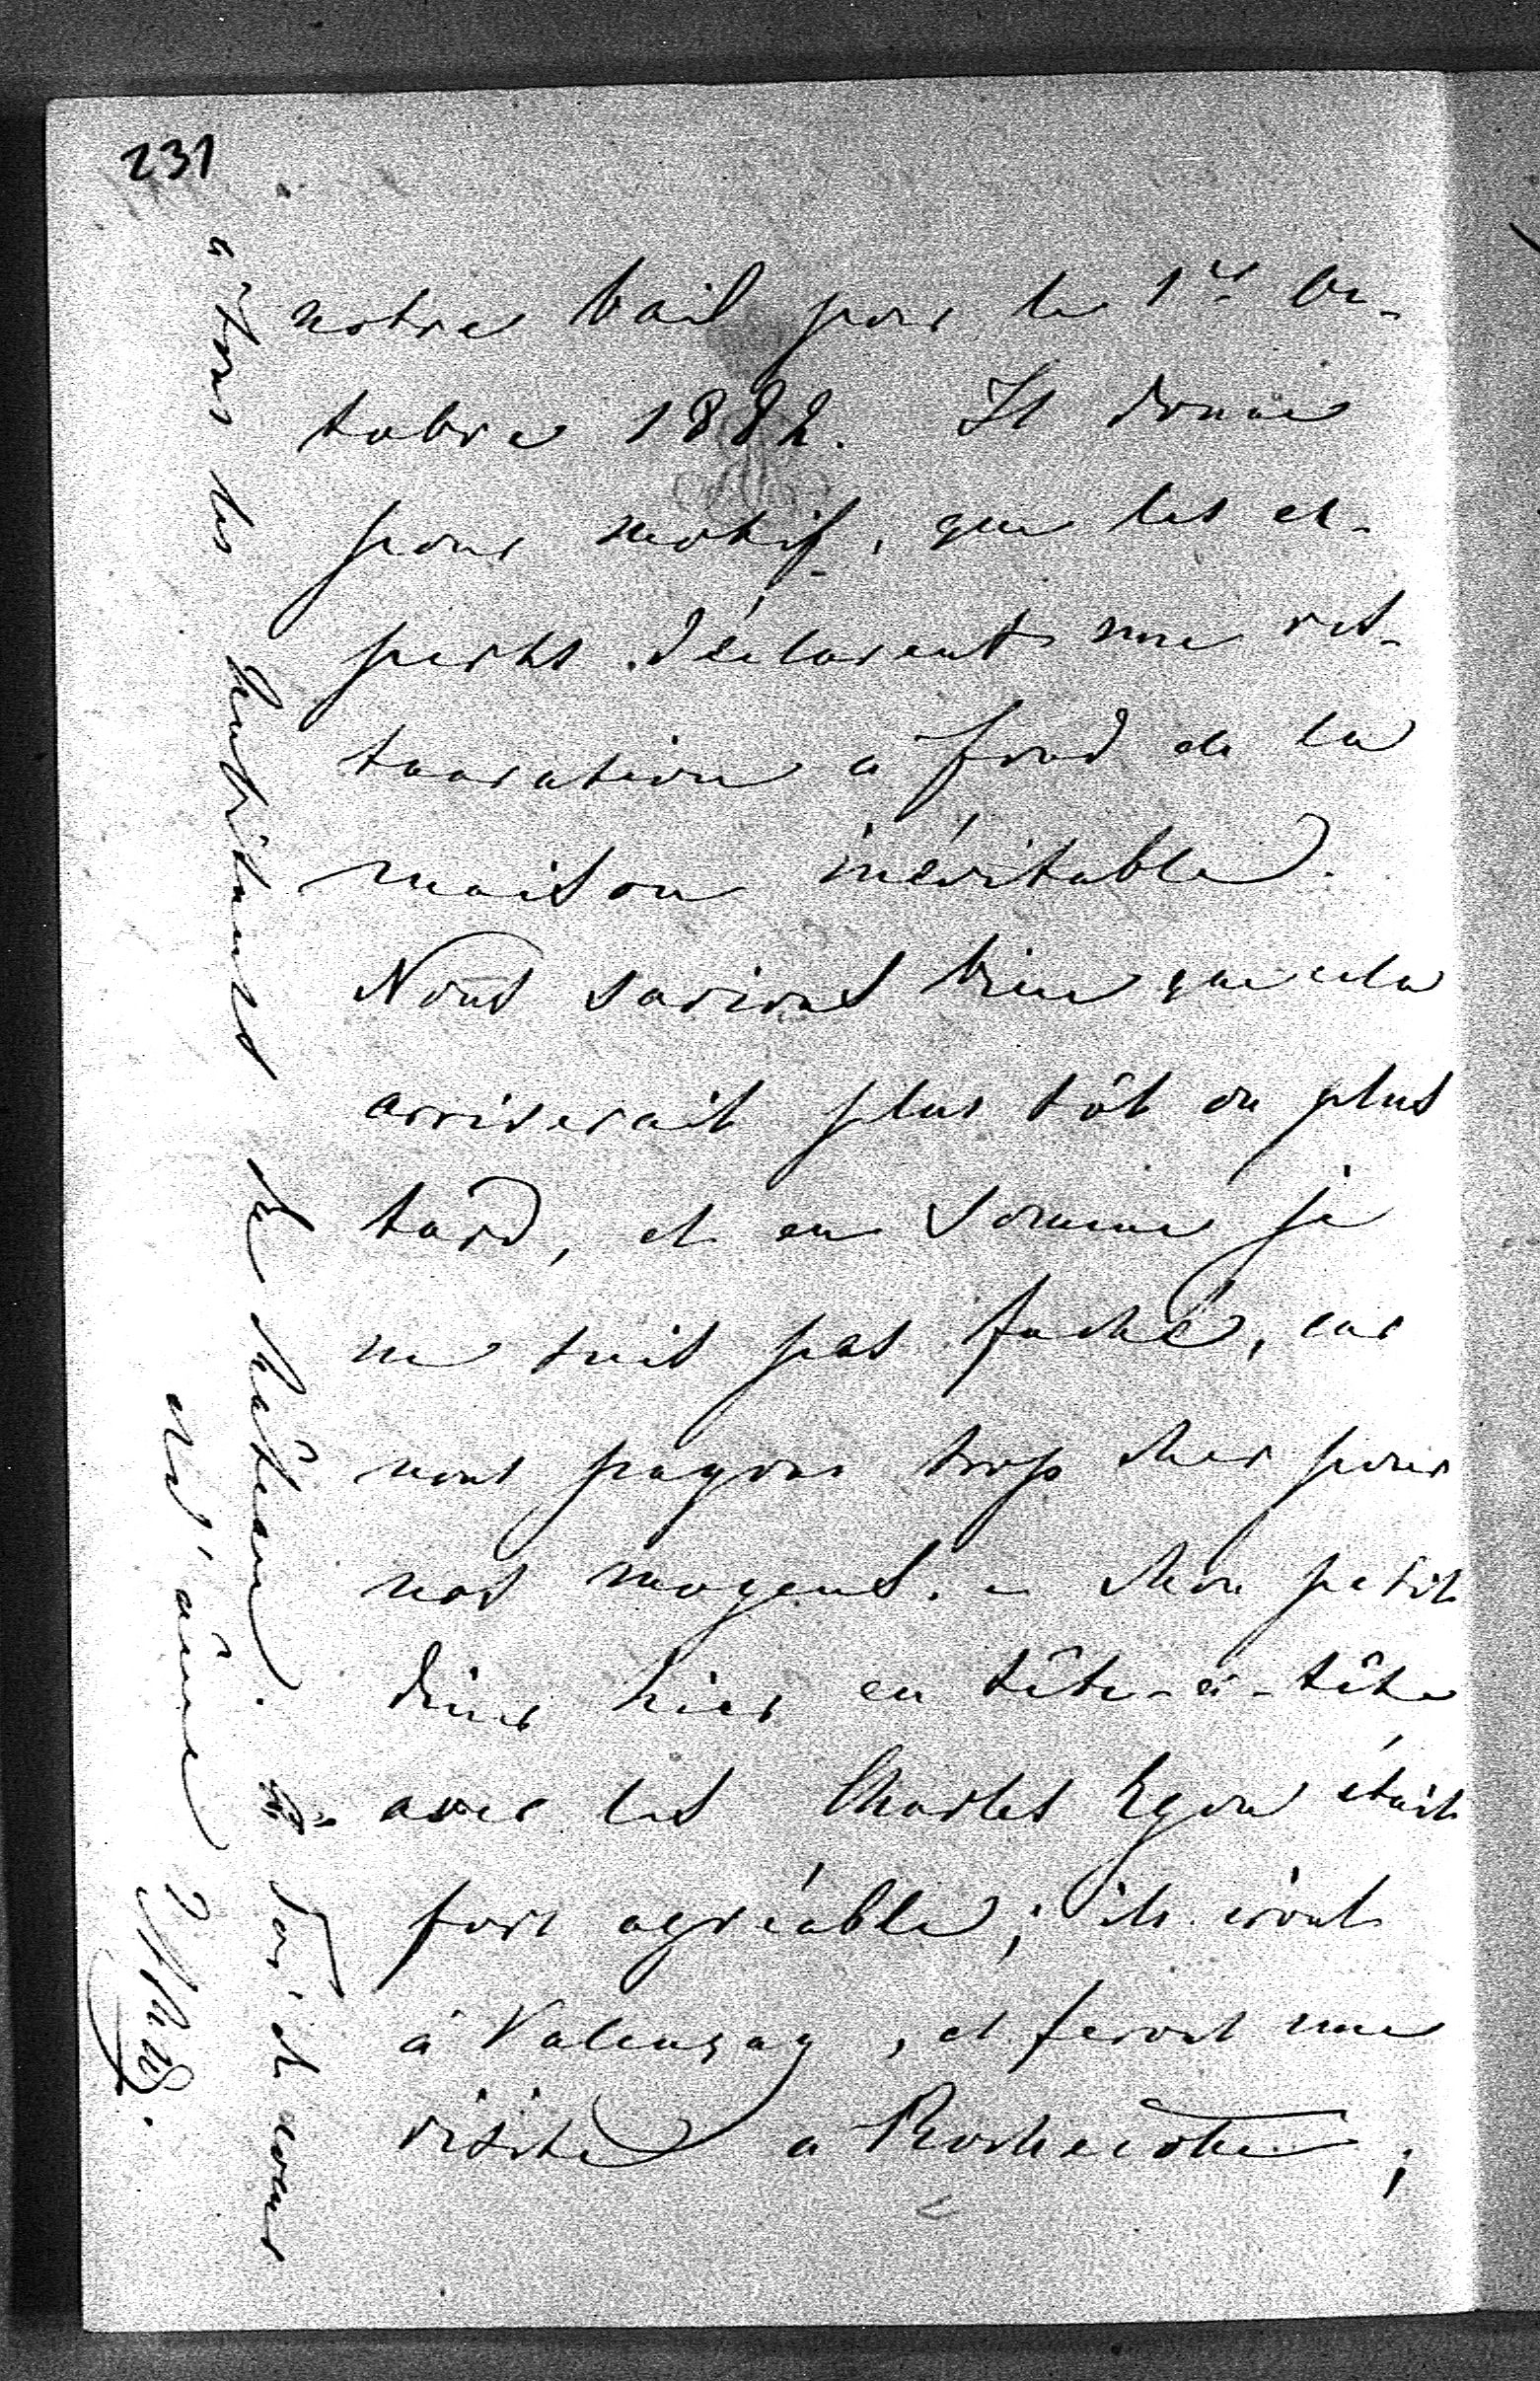 231
notre bail pour le 1er Oc-
tobre 1882. Il donne
pour motif, que les ex-
perts déclarent une res-
tauration à fond de la
maison inévitable.
Nous savions bien que cela
arriverait plus tôt ou plus
tard, et en somme je
ne suis pas faché, car
nous payons trop cher pour
nos moyens. – Mon petit
diner hier en tête-à-tête
avec les Charles Egon était
fort agréable; ils iront
à Valençay, et feront une
visite a Rochecotte;
à tous les habitants du château.
Toi, je
et t'aime